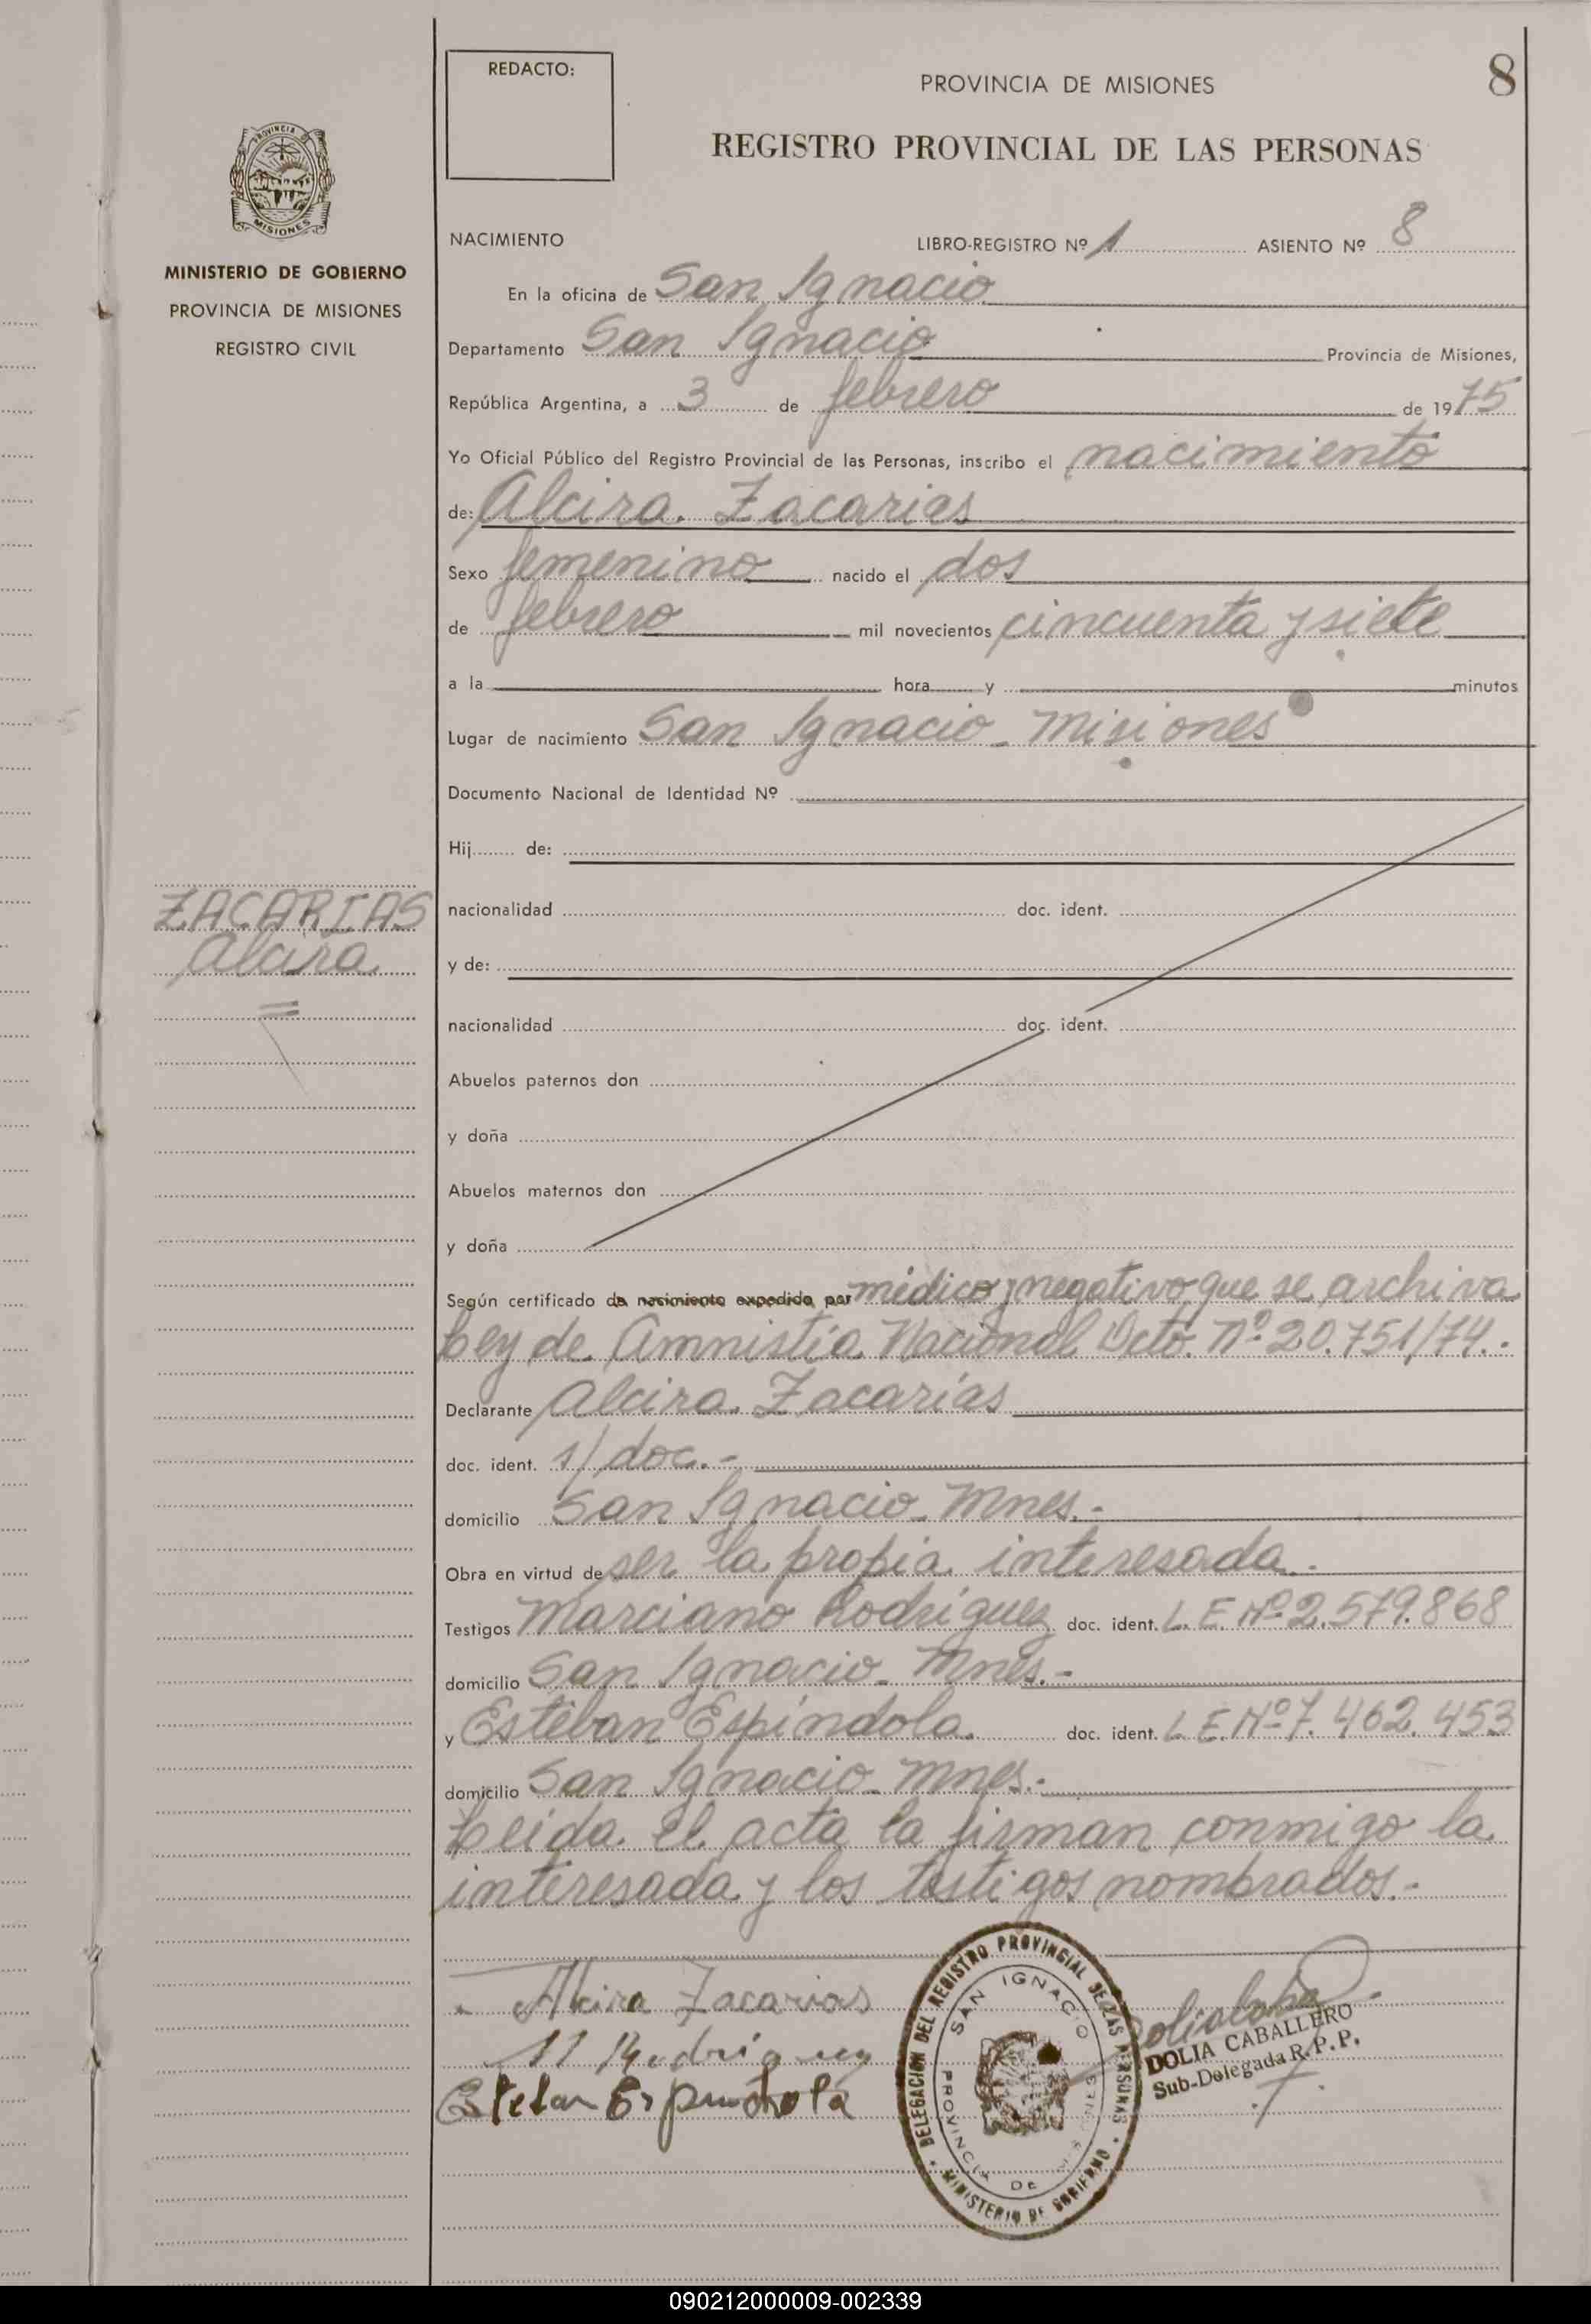 REDACTO:
8
PROVINCIA DE MISIONES
REGISTRO PROVINCIAL DE LAS PERSONAS
PROVINCIA DE
MISIONES
MINISTERIO DE GOBIERNO
PROVINCIA DE MISIONES
REGISTRO CIVIL
NACIMIENTO LIBRO-REGISTRO Nº 1 ASIENTO Nº 8
En la oficina de San Ignacio
Departamento San Ignacio Provincia de Misiones,
República Argentina, a 3 de febrero de 1975
Yo Oficial Público del Registro Provincial de las Personas, inscribo el nacimiento
de: Alcira Zacarias
Sexo femenino nacido el dos
de febrero mil novecientos cincuenta y siete
a la hora y minutos
Lugar de nacimiento San Ignacio - Misiones
Documento Nacional de Identidad Nº
Hij de:
ZACARIAS
Alcira
nacionalidad doc. ident.
y de:
nacionalidad doc. ident.
Abuelos paternos don
y doña
Abuelos maternos don
y doña
Según certificado de nacimiento expedido por médico y negativo que se archiva
Ley de Amnistía Nacional Dcto. Nº 20.751/74.-
Declarante Alcira Zacarías
doc. ident. s/doc.-
domicilio San Ignacio - Mnes.-
Obra en virtud de ser la propia interesada.-
Testigos Marciano Rodríguez doc. ident. L.E. Nº 2.579.868
domicilio San Ignacio - Mnes.-
y Esteban Espíndola doc. ident. L.E. Nº 7.462.453
domicilio San Ignacio - Mnes.-
Leída el acta la firman conmigo la
interesada y los testigos nombrados.-
Alcira Zacarias
M Rodriguez
Esteban Espindola
DELEGACION DEL REGISTRO PROVINCIAL DE LAS PERSONAS
SAN IGNACIO
PROVINCIA DE MISIONES
MINISTERIO DE GOBIERNO
DOLIA CABALLERO
Sub-Delegada R.P.P.
090212000009-002339